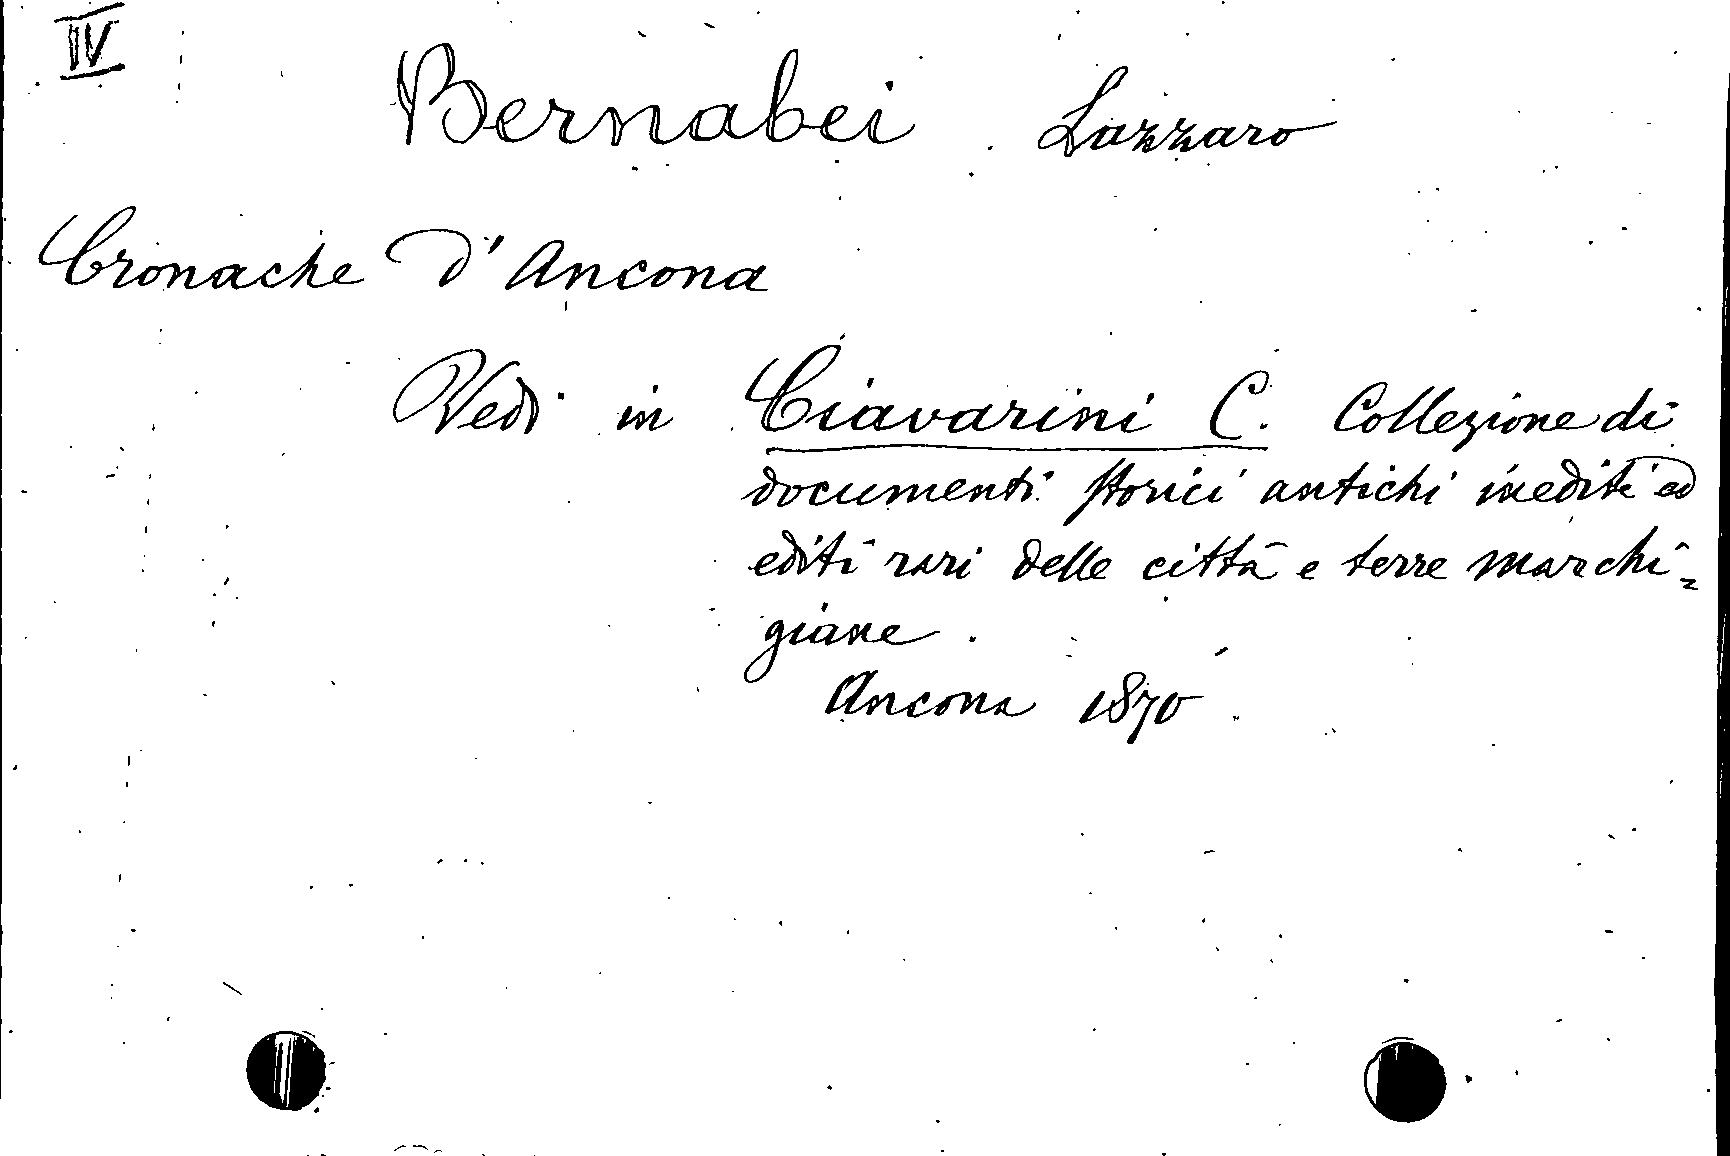 IV
Bernabei Lazzaro
Cronache d'Ancona
Vedi in Ciavarini C. Collezione di
documenti storici antichi inediti ed
editi rari delle città e terre marchi=
giane.
Ancona 1870